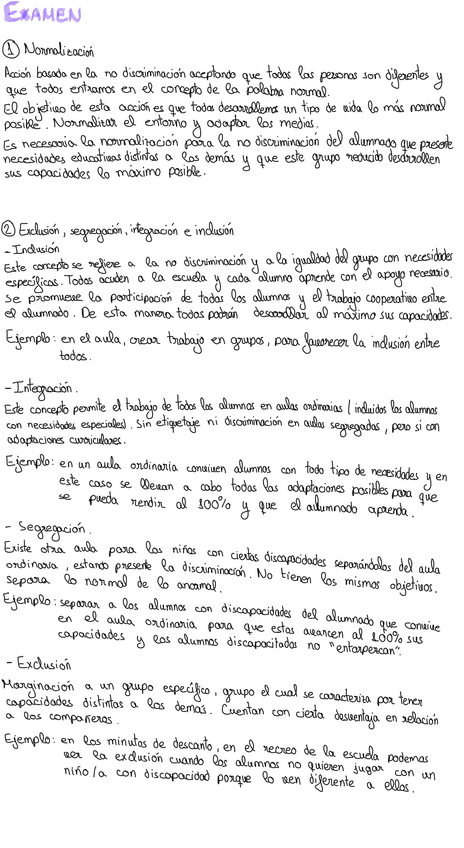 EXAMEN
① Normalización
Acción basada en la no discriminación aceptando que todas las personas son diferentes y
que todos entramos en el concepto de la palabra normal.
El objetivo de esta acción es que todos desarrollemos un tipo de vida lo más normal
posible. Normalizar el entorno y adaptar los medios.
Es necesaria la normalización para la no discriminación del alumnado que presente
necesidades educativas distintas a los demás y que este grupo reducido desarrollen
sus capacidades lo máximo posible.
② Exclusión, segregación, integración e inclusión
- Inclusión
Este concepto se refiere a la no discriminación y a la igualdad del grupo con necesidades
específicas. Todos acuden a la escuela y cada alumno aprende con el apoyo necesario.
Se promueve la participación de todos los alumnos y el trabajo cooperativo entre
el alumnado. De esta manera todos podrán desarrollar al máximo sus capacidades.
Ejemplo: en el aula, crear trabajo en grupos, para favorecer la inclusión entre
todos.
- Integración.
Este concepto permite el trabajo de todos los alumnos en aulas ordinarias (incluidos los alumnos
con necesidades especiales). Sin etiquetaje ni discriminación en aulas segregadas, pero si con
adaptaciones curriculares.
Ejemplo: en un aula ordinaria conviven alumnos con todo tipo de necesidades y en
este caso se llevan a cabo todas las adaptaciones posibles para que
se pueda rendir al 100% y que el alumnado aprenda.
- Segregación.
Existe otra aula para los niños con ciertas discapacidades separándolos del aula
ordinaria, estando presente la discriminación. No tienen los mismos objetivos.
Separa lo normal de lo anormal.
Ejemplo: separar a los alumnos con discapacidades del alumnado que convive
en el aula ordinaria para que estos avancen al 100% sus
capacidades y los alumnos discapacitados no "entorpezcan".
- Exclusión
Marginación a un grupo específico, grupo el cual se caracteriza por tener
capacidades distintas a los demás. Cuentan con cierta desventaja en relación
a los compañeros.
Ejemplo: en los minutos de descanso, en el recreo de la escuela podemos
ver la exclusión cuando los alumnos no quieren jugar con un
niño/a con discapacidad porque lo ven diferente a ellos.